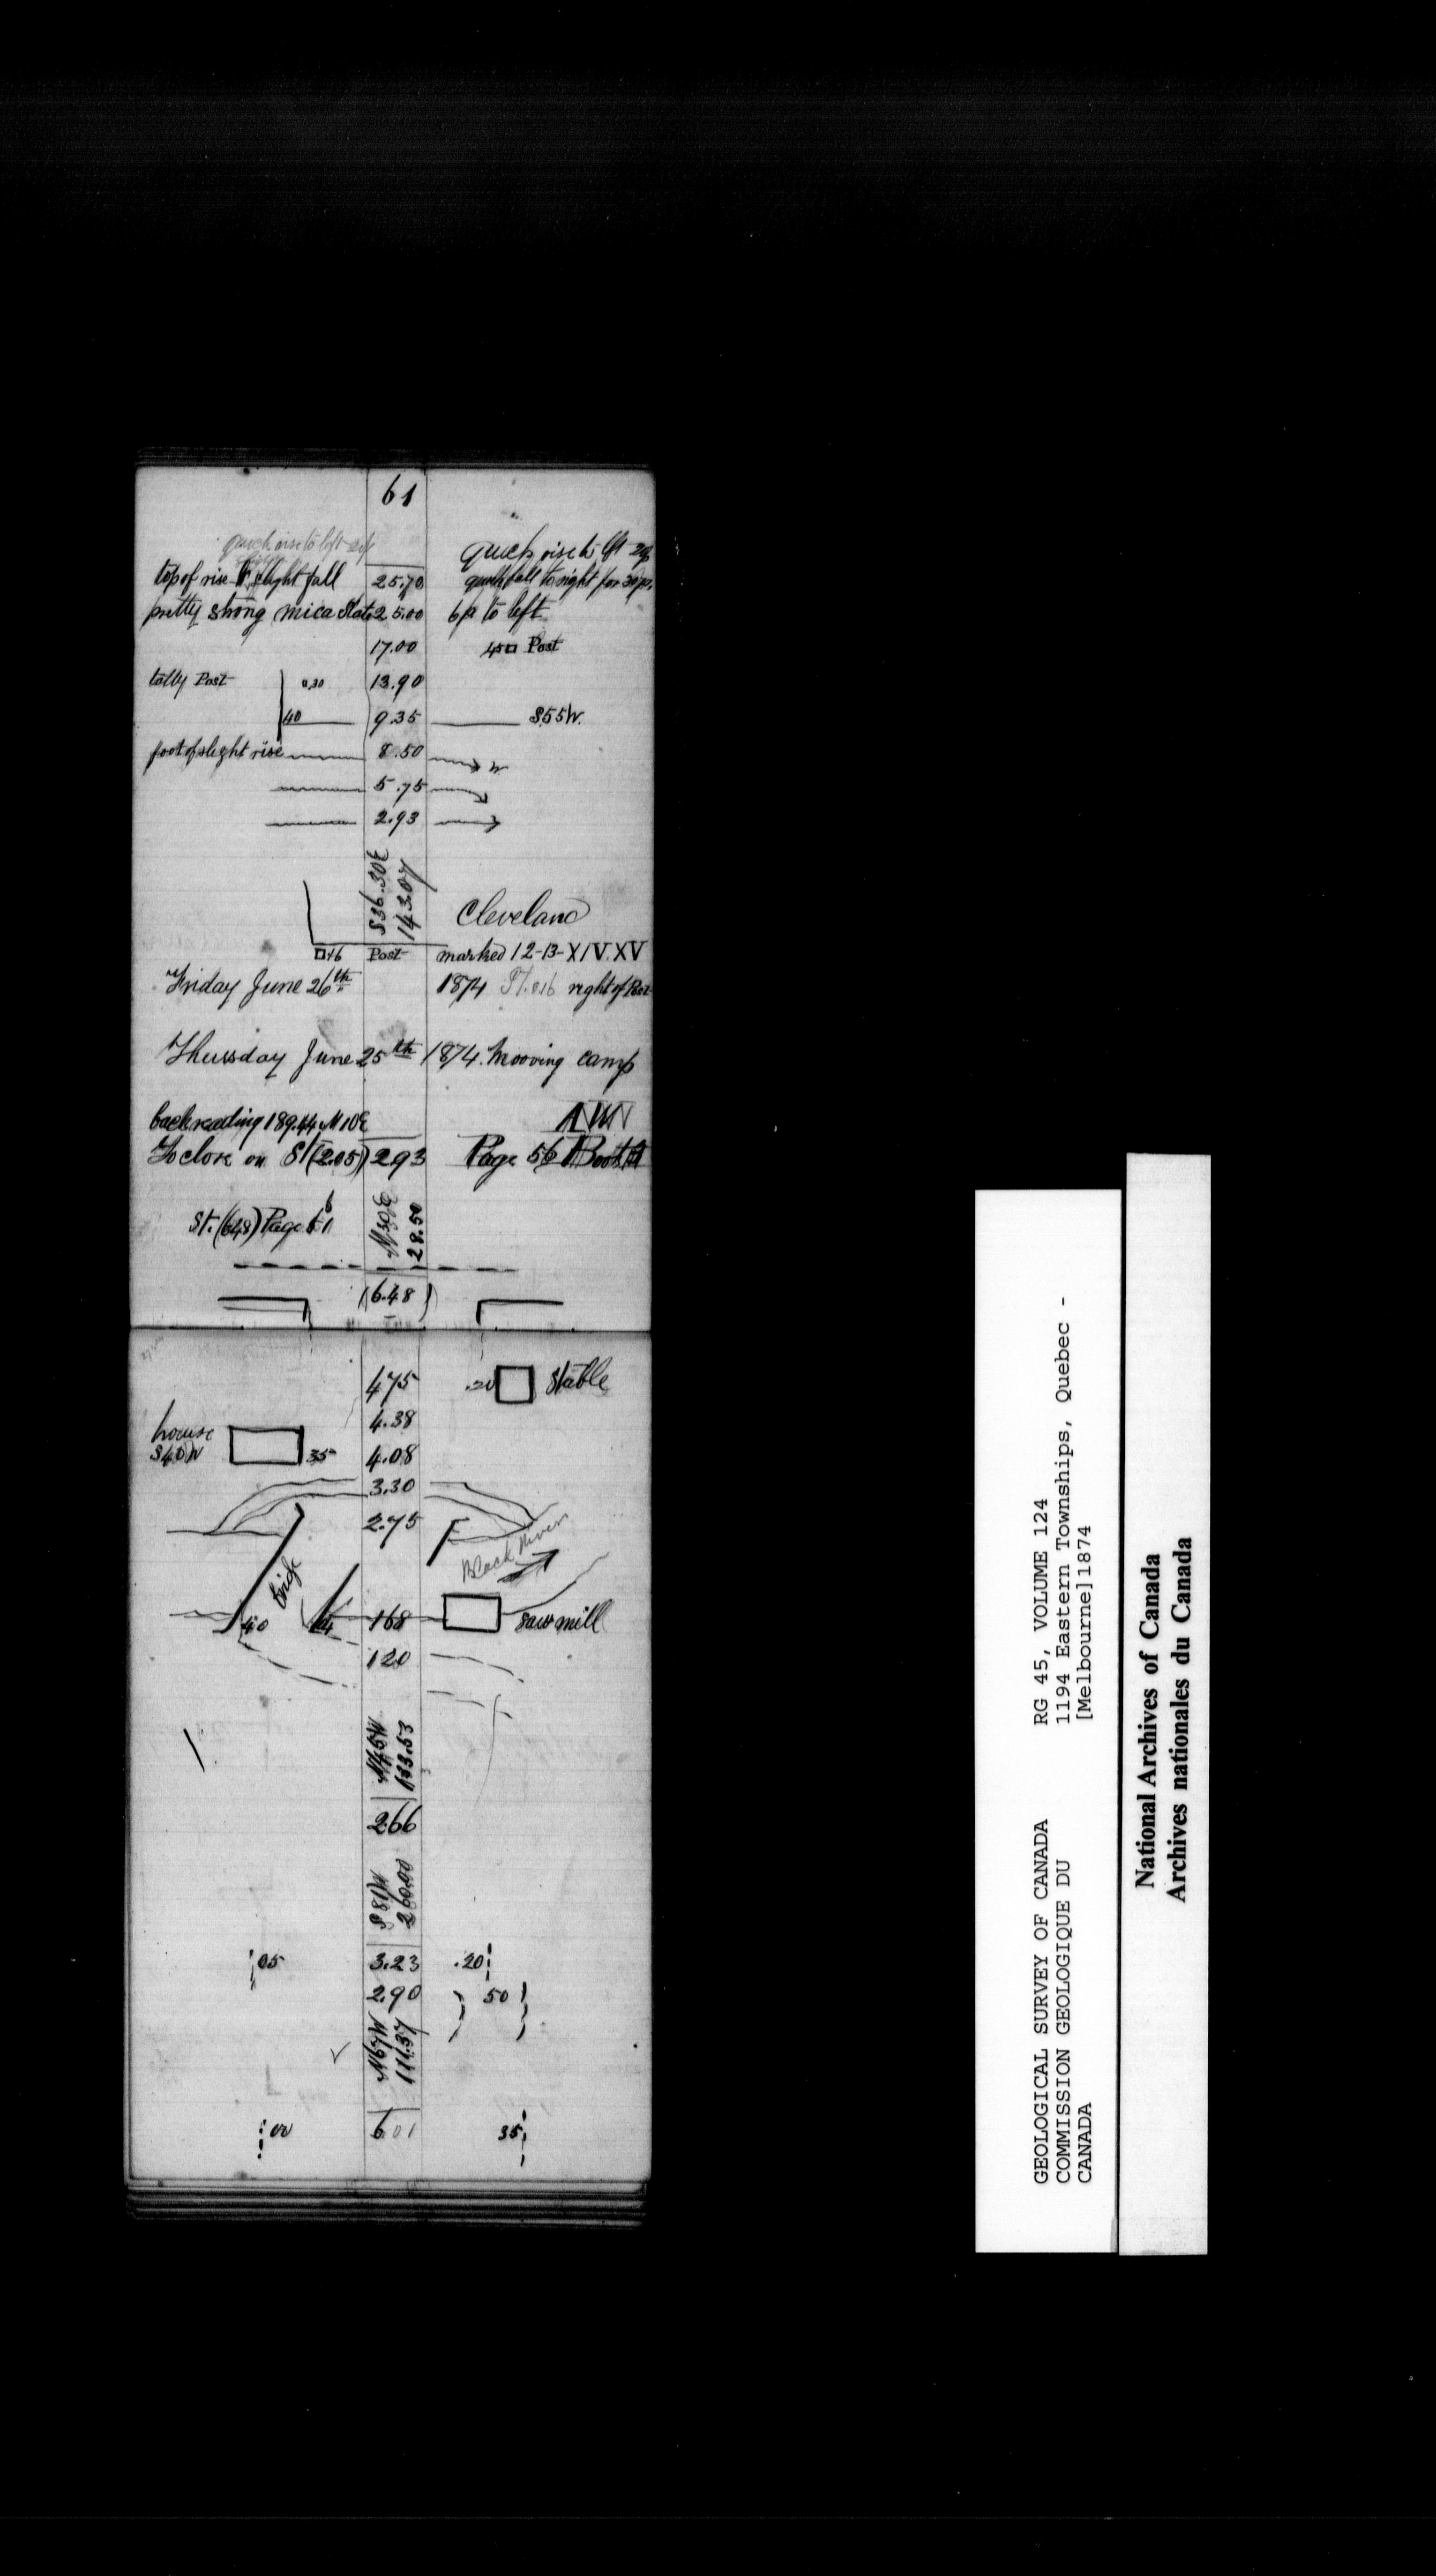 61
quick rise to left 20p
quick rise to lft 20p
top of rise slight fall 25.70 quick fall to right for 30 p.
pretty strong mica Slate 25.00 6p to left
17.00 450 Post
tally Post 0.30 13.90
40 9.35 S55W.
foot of slight rise 8.50 W
5.75
2.93
S36.30E
143.07
Cleveland
16 Post marked 12-13-XIV.XV
Friday June 26th 1874 St. 016 right of Post
Thursday June 25th 1874. Mooving camp
back reading 189.44 N10E
To close on St (2.05) 293 Page 56 Book
St. (648) Page
N30E
28.50
(6.48)
475 .20 Stable
4.38
house
S40W 35 4.08
3.30
2.75
Black River
bridge
40 168 Saw mill
120
N45W
133.53
266
S81W
260.00
05 3.23 .20
2.90 50
N67W
111.37
00 6.01 35
GEOLOGICAL SURVEY OF CANADA
COMMISSION GEOLOGIQUE DU
CANADA
RG 45, VOLUME 124
1194 Eastern Townships, Quebec -
[Melbourne]1874
National Archives of Canada
Archives nationales du Canada